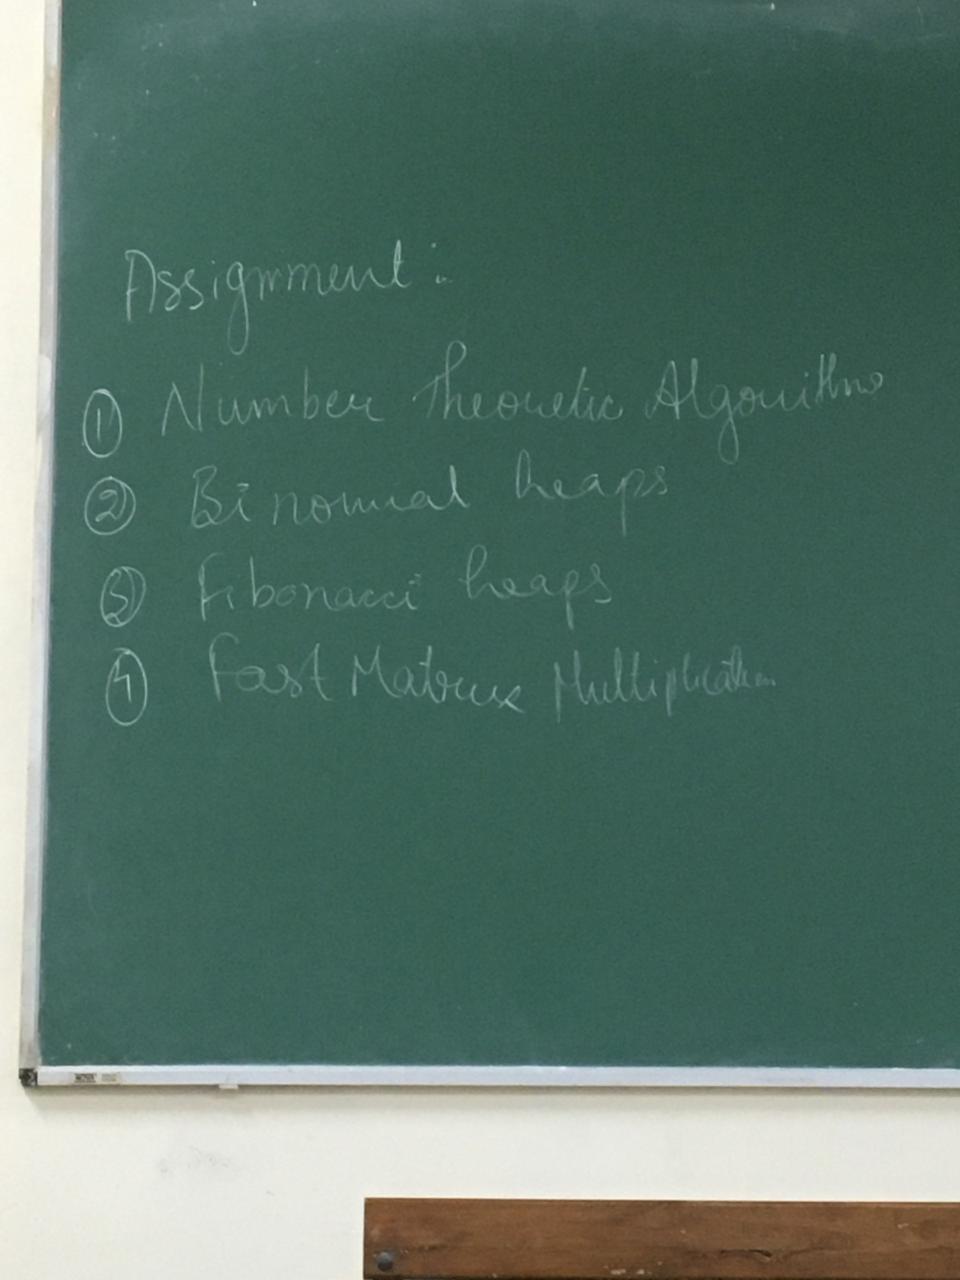 Assignment:
① Number Theoretic Algorithms
② Binomial heaps
③ Fibonacci heaps
④ Fast Matrix Multiplication